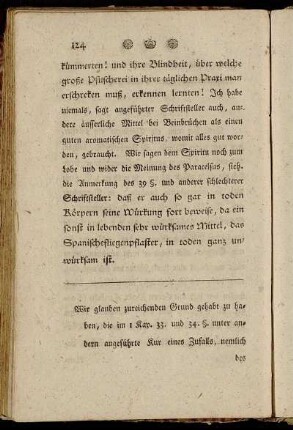 124
kümmerten! und ihre Blindheit, über welche
große Pfuscherei in ihrer täglichen Praxi man
erschreken muß, erkennen lernten! Ich habe
niemals, sagt angeführter Schriftsteller auch, an-
dere äusserliche Mittel bei Beinbrüchen als einen
guten aromatischen Spiritus, womit alles gut wor-
den, gebraucht. Wir sagen dem Spiritu noch zum
lobe und wider die Meinung des Paracelsus, sieh.
die Anmerkung des 39 §. und anderer schlechterer
Schriftsteller: daß er auch so gar in toden
Körpern seine Würkung fort beweise, da ein
sonst in lebenden sehr würksames Mittel, das
Spanischefliegenpflaster, in toden ganz un-
würksam ist.
Wir glauben zureichenden Grund gehabt zu ha-
ben, die im 1 Kap. 33. und 34. §. unter an-
dern angeführte Kur eines Zufalls, nemlich
des